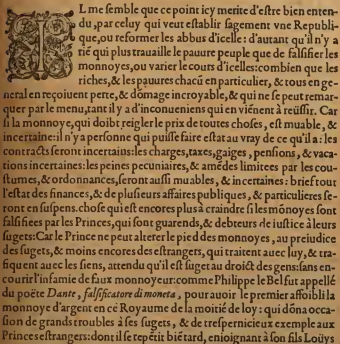 IL me semble que ce point icy merite d'estre bien enten-
du, par celuy qui veut establir sagement vne Republi-
que, ou reformer les abbus d'icelle: d'autant qu'il n'y a
riē qui plus trauaille le pauure peuple que de falsifier les
monnoyes, ou varier le cours d'icelles: combien que les
riches, & les pauures chacū en particulier, & tous en ge-
neral en reçoiuent perte, & dōmage incroyable, & qui ne se peut remar-
quer par le menu, tant il y a d'inconueniens qui en viēnent à reüssir. Car
si la monnoye, qui doibt reigler le prix de toutes choses, est muable, &
incertaine: il n'y a personne qui puisse faire estat au vray de ce qu'il a: les
contracts seront incertains: les charges, taxes, gaiges, pensions, & vaca-
tions incertaines: les peines pecuniaires, & amēdes limitees par les cou-
stumes, & ordonnances, seront aussi muables, & incertaines: brief tout
l'estat des finances, & de plusieurs affaires publiques, & particulieres se-
ront en suspens. chose qui est encores plus à craindre si les mōnoyes sont
falsifiees par les Princes, qui sont guarends, & debteurs de iustice à leurs
sugets: Car le Prince ne peut alterer le pied des monnoyes, au preiudice
des sugets, & moins encores des estrangers, qui traitent auec luy, & tra-
fiquent auec les siens, attendu qu'il est suget au droict des gens: sans en-
courir l'infamie de faux monnoyeur: comme Philippe le Bel fut appellé
du poëte Dante, falsificatore di moneta, pour auoir le premier affoibli la
monnoye d'argent en ce Royaume de la moitié de loy: qui dōna occa-
sion de grands troubles à ses sugets, & de trespernicieux exemple aux
Princes estrangers: dont il se repētit biē tard, enioignant à son fils Loüys